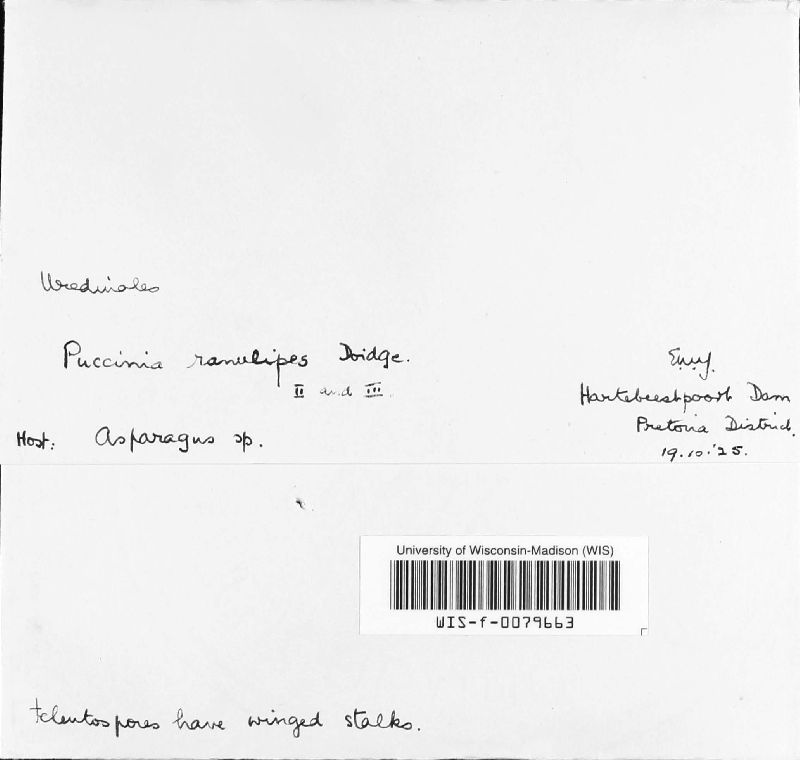 Uredinales
Puccinia ranulipes Doidge.
II and III.
Host: Asparagus sp.
Hartebeestpoort Dam
Pretoria District.
19.10.'25.
University of Wisconsin-Madison (WIS)
WIS-f-0079663
teleutospores have winged stalks.